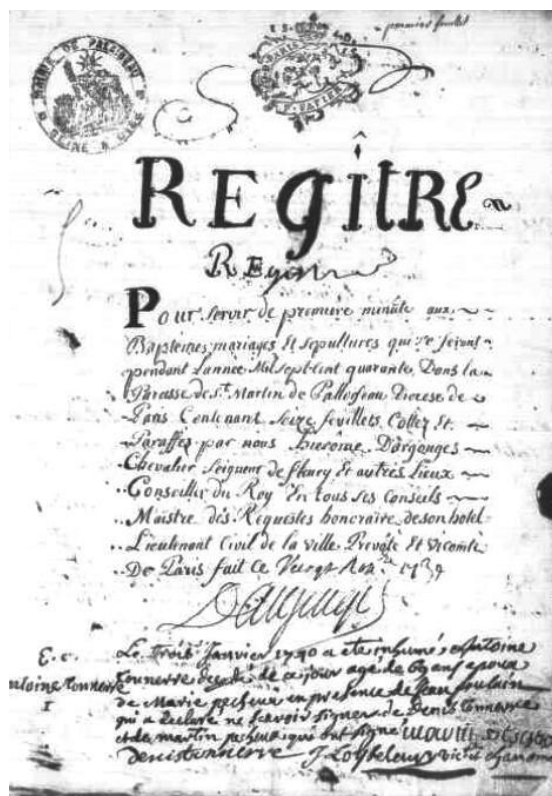 premier feuillet
MAIRIE DE PALAISEAU
SEINE & OISE
REGîtRE
REgitr
Pour servir de première minute aux
Baptemes, mariages Et sepultures qui se feront
pendant Lannée Mil sept cent quarante, Dans la
Paroisse de St. Martin de Palloiseau Diocese de
Paris Contenant Seize feuillets Cottez Et
Paraffez par nous hierôme Dargouges
Chevalier Seigneur de fleury Et autres Lieux
Conseiller du Roy En tous ses Conseils
Maistre des Requestes honoraire deson hotel
Lieutenant Civil de la ville Prevôté Et vicomté
De Paris fait Ce Vingt 1739
Dargouges
Le trois Janvier 1740 a ete inhumé Antoine
tonnerre decedé de ce jour agé de 69 ans epoux
de Marie pecheux en presence de Jean
qui a declaré ne scavoir signer de Denis tonnerre
et de martin pecheux qui ont signé
denis tonnerre
E. c.
antoine tonnerre
1